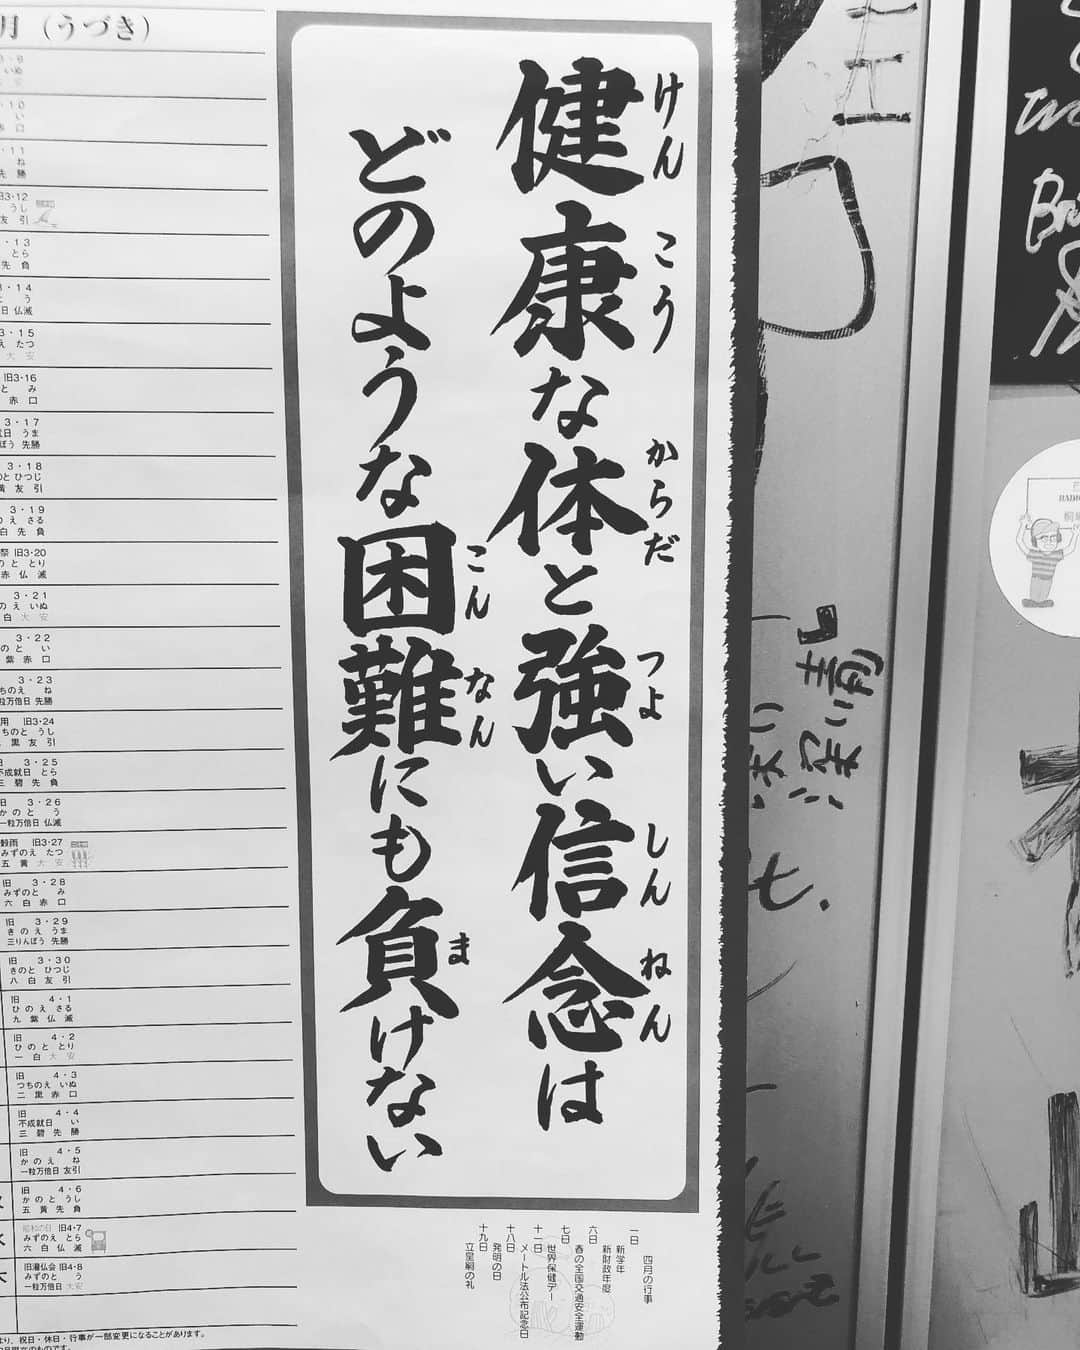 月（うづき）
健康な体と強い信念は
けんこう からだ つよ しんねん
どのような困難にも負けない
こんなん ま
・10
い
口
・11
ね
先勝
旧3・12
うし
友引
・13
とら
先負
・14
う
日 仏滅
3・15
え たつ
大安
旧3・16
と み
赤口
3・17
日 うま
ぼう 先勝
3・18
のと ひつじ
黄 友引
3・19
のえ さる
白 先負
祭 旧3・20
のと とり
赤 仏滅
3・21
のえ いぬ
白 大安
3・22
のと い
紫 赤口
3・23
ちのえ ね
粒万倍日 先勝
用 旧3・24
ちのと うし
黒 友引
3・25
不成就日 とら
三碧 先負
旧 3・26
かのと う
一粒万倍日 仏滅
穀雨 旧3・27
みずのえ たつ
五黄 大安
旧 3・28
みずのと み
六白 赤口
旧 3・29
きのえ うま
三りんぼう 先勝
旧 3・30
きのと ひつじ
八白 友引
旧 4・1
ひのえ さる
九紫 仏滅
旧 4・2
ひのと とり
一白 大安
旧 4・3
つちのえ いぬ
二黒 赤口
旧 4・4
不成就日 い
三碧 先勝
旧 4・5
かのえ ね
一粒万倍日 友引
旧 4・6
かのと うし
五黄 先負
昭和の日 旧4・7
みずのえ とら
六白 仏滅
旧灌仏会 旧4・8
みずのと う
一粒万倍日 大安
より、祝日・休日・行事が一部変更になることがあります。
四月の行事
一日 新学年
新財政年度
六日 春の全国交通安全運動
七日 世界保健デー
十一日 メートル法公布記念日
十八日 発明の日
十九日 立皇嗣の礼
RADIO